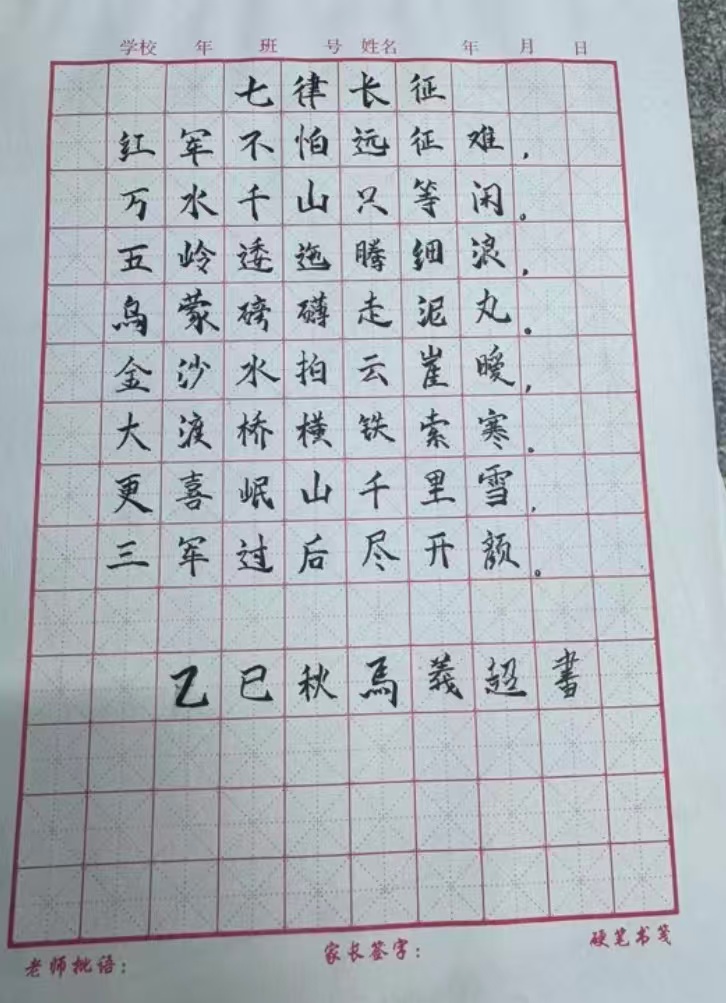 学校 年 班 号 姓名 年 月 日
七律长征
红军不怕远征难，
万水千山只等闲。
五岭逶迤腾细浪，
乌蒙磅礴走泥丸。
金沙水拍云崖暖，
大渡桥横铁索寒。
更喜岷山千里雪，
三军过后尽开颜。
乙巳秋馬義超書
老师批语：
家长签字：
硬笔书笺